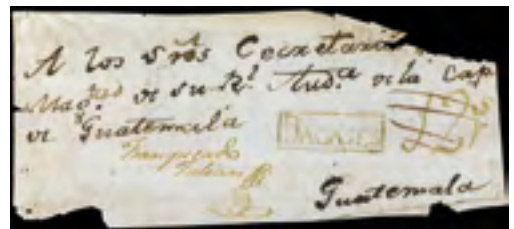 A los S.res Cecretario
Mag.tad de su R.l Aud.a de la Cap
de Guatemala
Franqueado
Guatemala